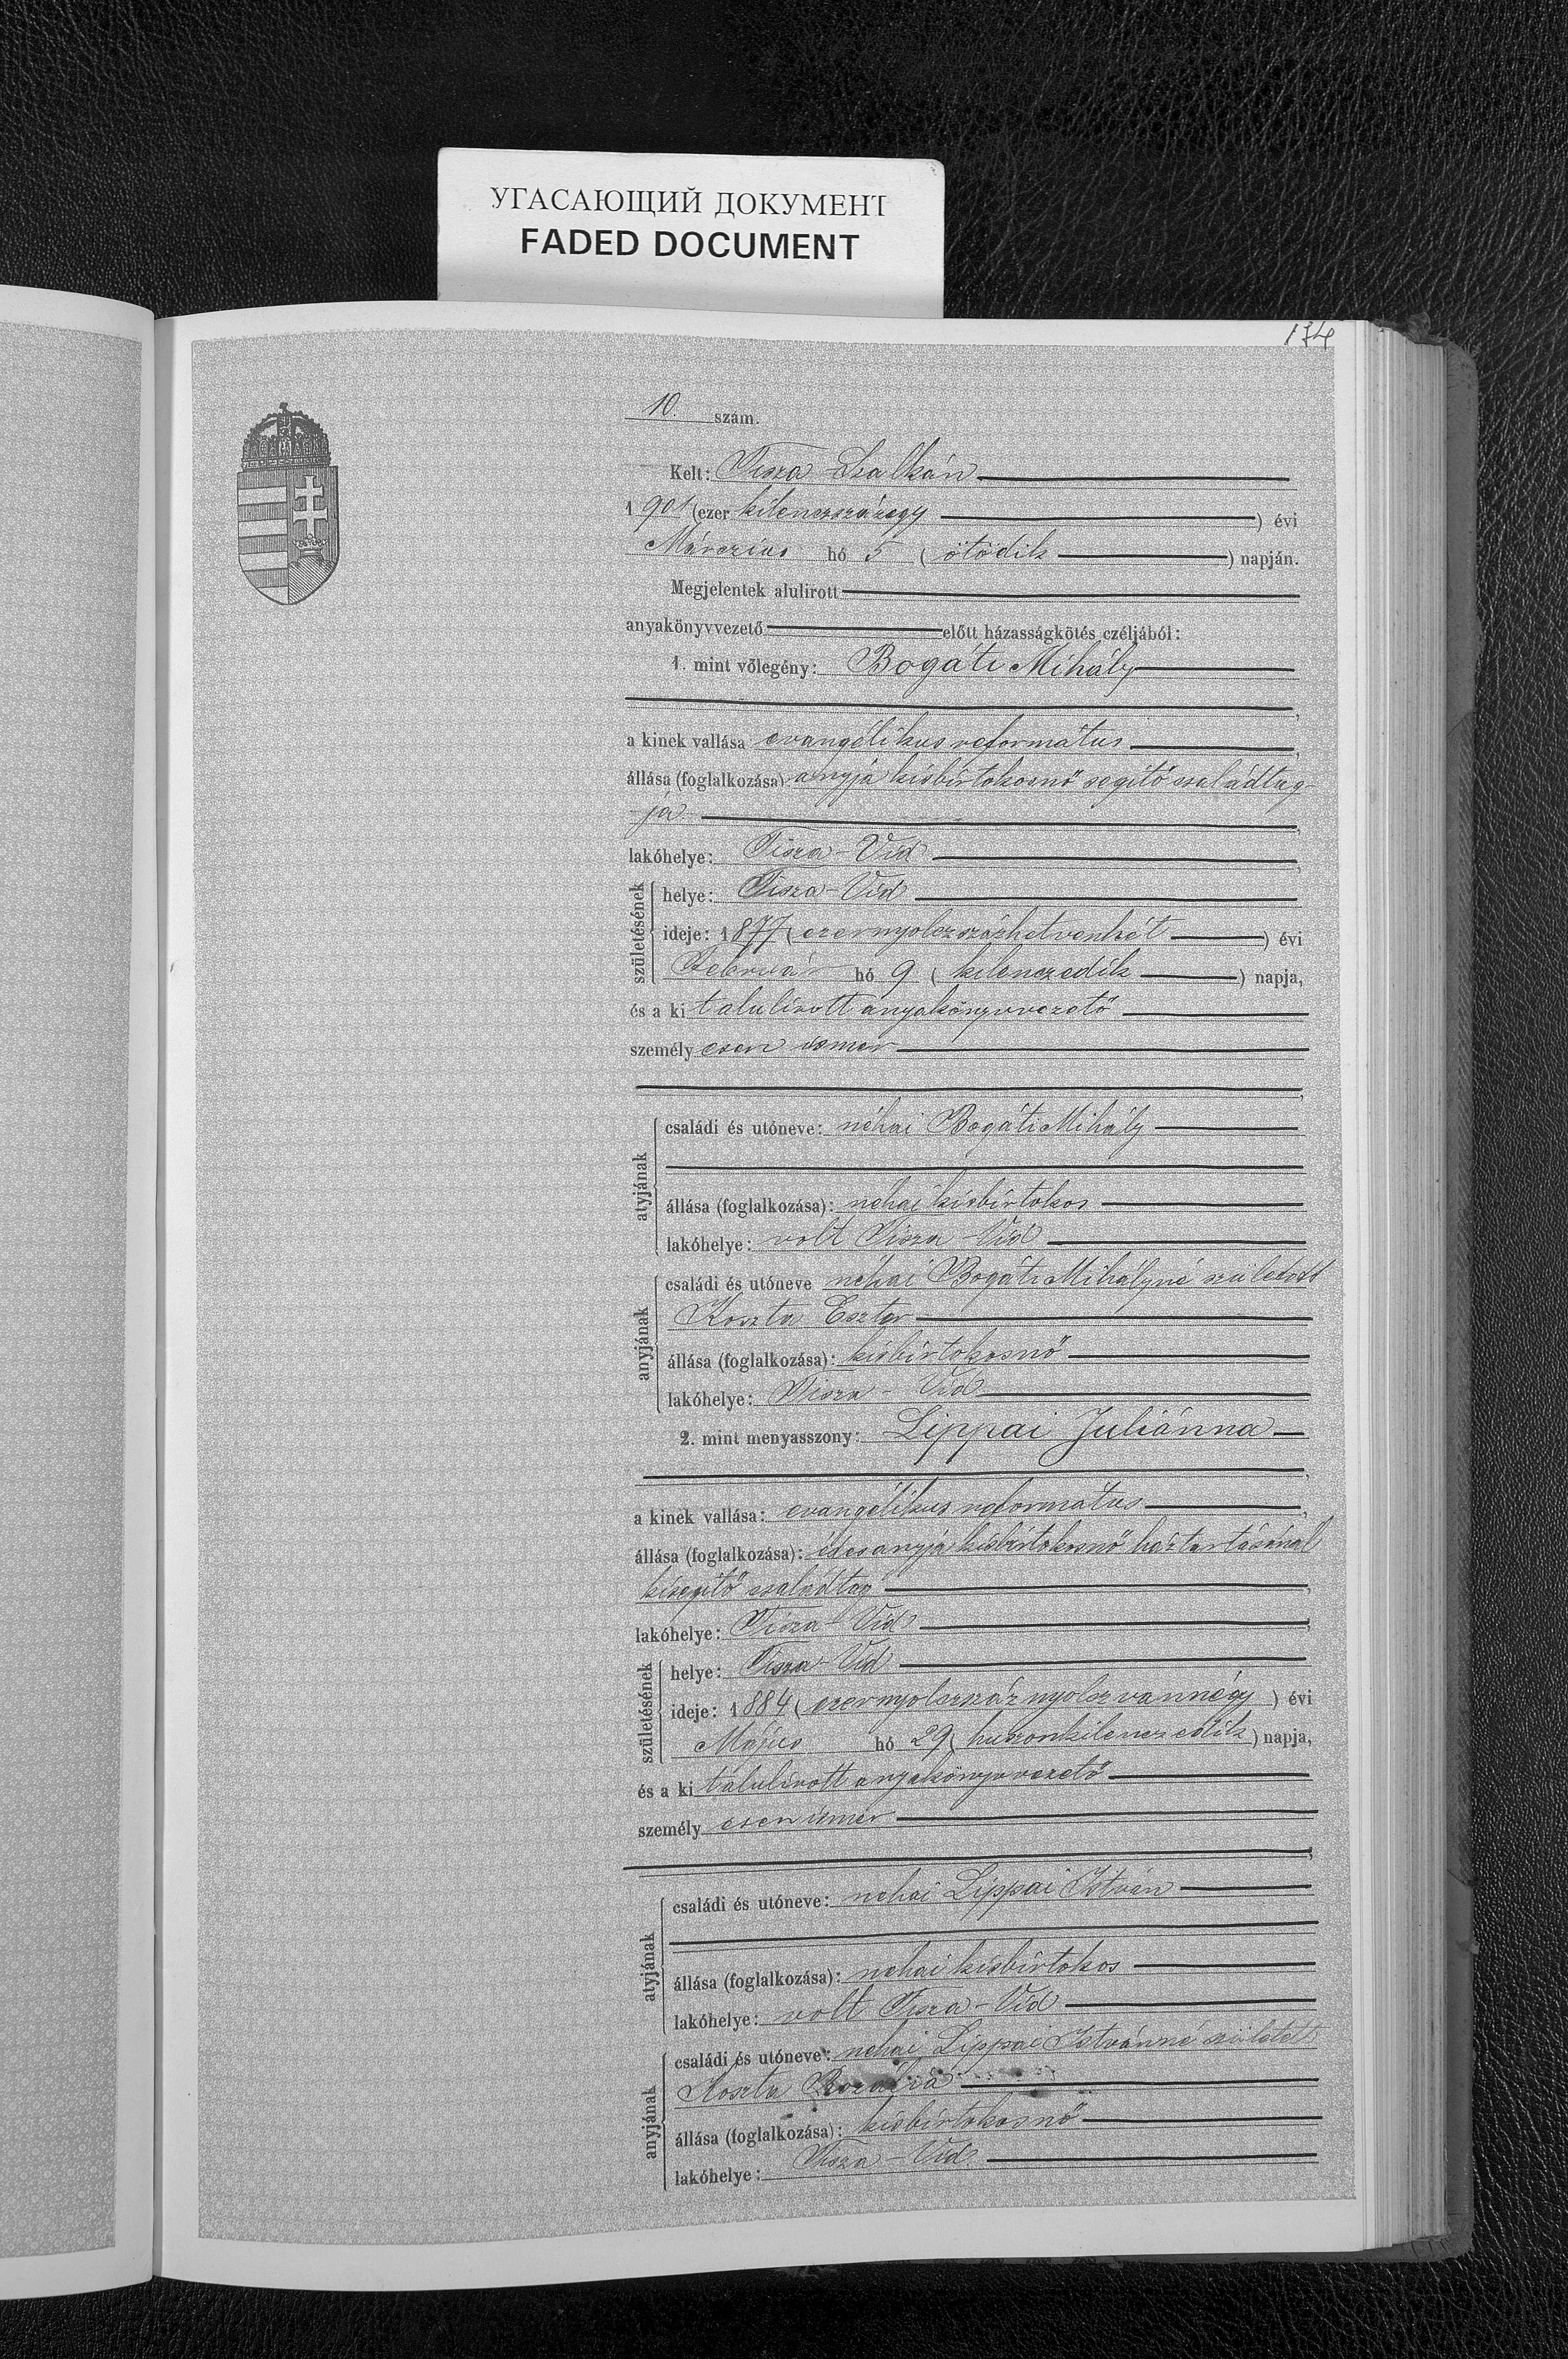 УГАСАЮЩИЙ ДОКУМЕНТ
FADED DOCUMENT
174
10. szám.
Kelt: Tisza Szalkán
1901 (ezer kilenczszázegy) évi
Márczius hó 5 (ötödik) napján.
Megjelentek alulirott
anyakönyvvezető előtt házasságkötés czéljából:
1. mint vőlegény: Bogáti Mihály
,
a kinek vallása evangélikus református,
állása (foglalkozása) anyja kisbirtokosnő segitő családtag-
ja,
lakóhelye: Tisza-Vid,
születésének
helye: Tisza-Vid
ideje: 1877 (ezernyolczszázhetvenhét) évi
Február hó 9 (kilenczedik) napja,
és a ki t alulirott anyakönyvvezető
személyesen ismer
,
atyjának
családi és utóneve: néhai Bogáti Mihály
állása (foglalkozása): néhai kisbirtokos
lakóhelye: volt Tisza-Vid
anyjának
családi és utóneve néhai Bogáti Mihályné született
Koszta Eszter
állása (foglalkozása): kisbirtokosnő
lakóhelye: Tisza-Vid
2. mint menyasszony: Lippai Juliánna
,
a kinek vallása: evangélikus református,
állása (foglalkozása): édesanyja kisbirtokosnő háztartásánál
kisegitő családtag,
lakóhelye: Tisza-Vid,
születésének
helye: Tisza-Vid
ideje: 1884 (ezernyolczszáznyolczvannégy) évi
Május hó 29 (huszonkilenczedik) napja,
és a ki t alulirott anyakönyvvezető
személyesen ismer
,
atyjának
családi és utóneve: néhai Lippai István
állása (foglalkozása): néhai kisbirtokos
lakóhelye: volt Tisza-Vid
anyjának
családi és utóneve: néhai Lippai Istvánné született
Koszta
állása (foglalkozása): kisbirtokosnő
lakóhelye: Tisza-Vid